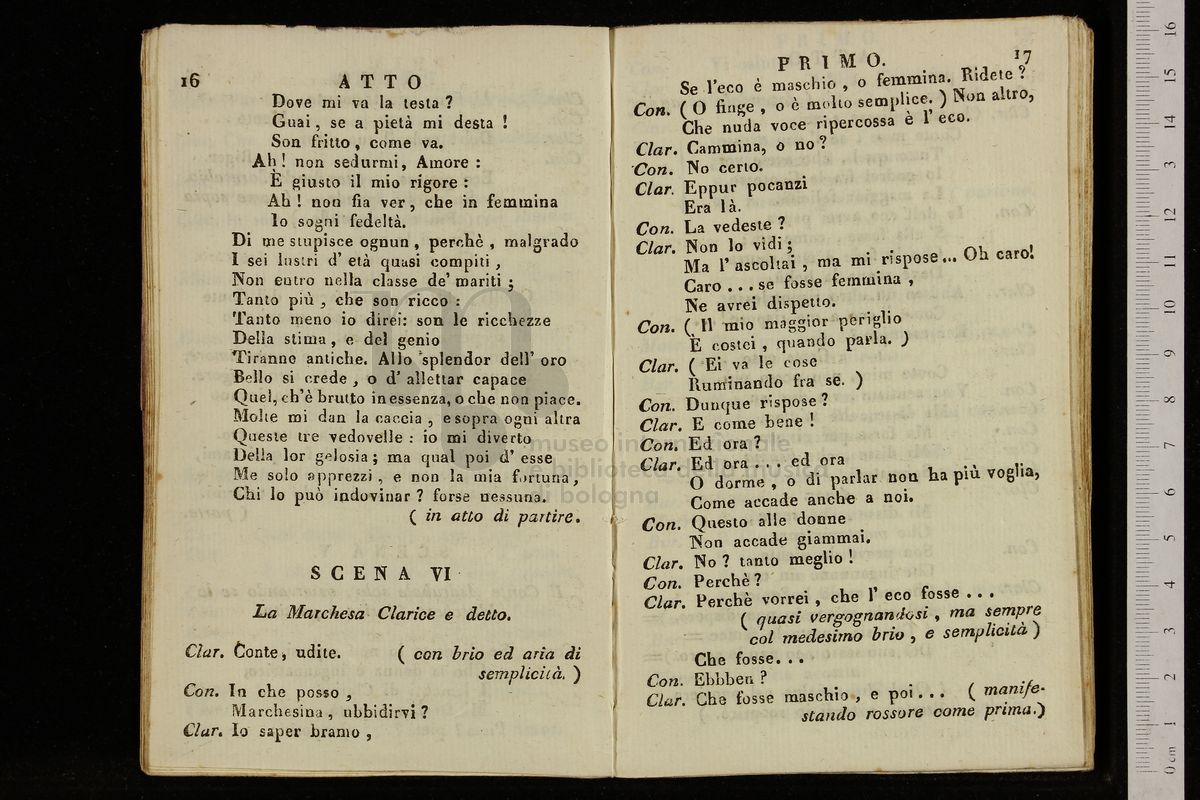 16 ATTO
Dove mi va la testa ?
Guai, se a pietà mi desta !
Son fritto, come va.
Ah! non sedurmi, Amore :
È giusto il mio rigore :
Ah ! non fia ver, che in femmina
Io sogni fedeltà.
Di me stupisce ognun, perchè, malgrado
I sei lustri d' età quasi compiti,
Non entro nella classe de' mariti ;
Tanto più, che son ricco :
Tanto meno io direi: son le ricchezze
Della stima, e del genio
Tiranne antiche. Allo splendor dell' oro
Bello si crede, o d' allettar capace
Quel, ch'è brutto in essenza, o che non piace.
Molte mi dan la caccia, e sopra ogni altra
Queste tre vedovelle : io mi diverto
Della lor gelosia ; ma qual poi d' esse
Me solo apprezzi, e non la mia fortuna,
Chi lo può indovinar ? forse nessuna.
( in atto di partire.
SCENA VI
La Marchesa Clarice e detto.
Clar. Conte, udite. ( con brio ed aria di
semplicità. )
Con. In che posso,
Marchesina, ubbidirvi ?
Clar. Io saper bramo,
PRIMO. 17
Se l'eco è maschio, o femmina. Ridete ?
Con. ( O finge, o è molto semplice. ) Non altro,
Che nuda voce ripercossa è l' eco.
Clar. Cammina, o no ?
Con. No certo.
Clar. Eppur pocanzi
Era là.
Con. La vedeste ?
Clar. Non lo vidi ;
Ma l' ascoltai, ma mi rispose... Oh caro!
Caro ... se fosse femmina,
Ne avrei dispetto.
Con. ( Il mio maggior periglio
E costei, quando parla. )
Clar. ( Ei va le cose
Ruminando fra se. )
Con. Dunque rispose ?
Clar. E come bene !
Con. Ed ora ?
Clar. Ed ora ... ed ora
O dorme, o di parlar non ha più voglia,
Come accade anche a noi.
Con. Questo alle donne
Non accade giammai.
Clar. No ? tanto meglio !
Con. Perchè ?
Clar. Perchè vorrei, che l' eco fosse ...
( quasi vergognandosi, ma sempre
col medesimo brio, e semplicità )
Che fosse...
Con. Ebbben ?
Clar. Che fosse maschio, e poi ... ( manife-
stando rossore come prima.)
museo internazionale
e biblioteca della musica
di bologna
0 cm 1 2 3 4 5 6 7 8 9 10 11 12 13 14 15 16